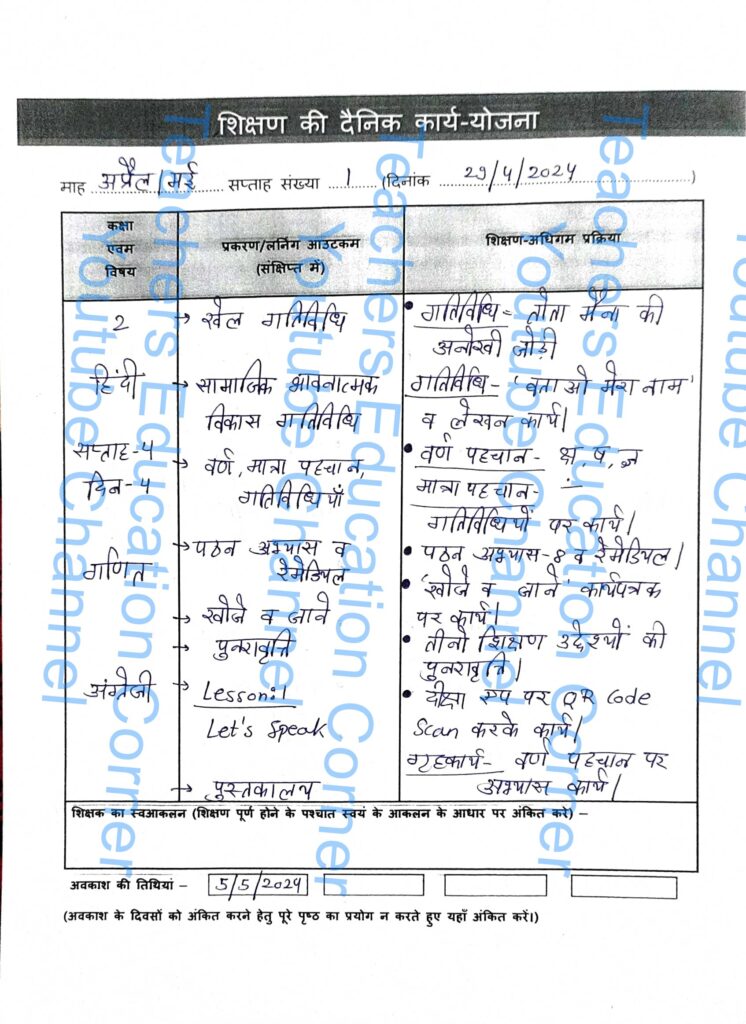 शिक्षण की दैनिक कार्य-योजना
माह अप्रैल/मई सप्ताह संख्या 1 (दिनांक 29/4/2024)
कक्षा
एवम
विषय
प्रकरण/लर्निंग आउटकम
(संक्षिप्त में)
शिक्षण-अधिगम प्रक्रिया
2
हिंदी
सप्ताह-4
दिन-4
गणित
अंग्रेजी
→ खेल गतिविधि
→ सामाजिक भावनात्मक
विकास गतिविधि
→ वर्ण, मात्रा पहचान,
गतिविधियाँ
→ पठन अभ्यास व
रेमेडियल
→ खोजे व जाने
→ पुनरावृत्ति
→ Lesson:1
Let's Speak
→ पुस्तकालय
• गतिविधि- तोता मैना की
अनोखी जोड़ी
गतिविधि- 'बताओ मेरा नाम'
व लेखन कार्य।
• वर्ण पहचान- क्ष, ष, ज्ञ
मात्रा पहचान-
गतिविधियों पर कार्य।
• पठन अभ्यास-8 व रेमेडियल।
• 'खोजे व जाने' कार्यपत्रक
पर कार्य।
• तीनो शिक्षण उद्देश्यों की
पुनरावृत्ति।
• दीक्षा एप पर QR Code
Scan करके कार्य।
गृहकार्य- वर्ण पहचान पर
अभ्यास कार्य।
शिक्षक का स्वआकलन (शिक्षण पूर्ण होने के पश्चात स्वयं के आकलन के आधार पर अंकित करे) –
अवकाश की तिथियां – 5/5/2024
(अवकाश के दिवसों को अंकित करने हेतु पूरे पृष्ठ का प्रयोग न करते हुए यहाँ अंकित करें।)
Teachers Education Corner
Youtube Channel
Teachers Education Corner
Youtube Channel
Teachers Education Corner
Youtube Channel